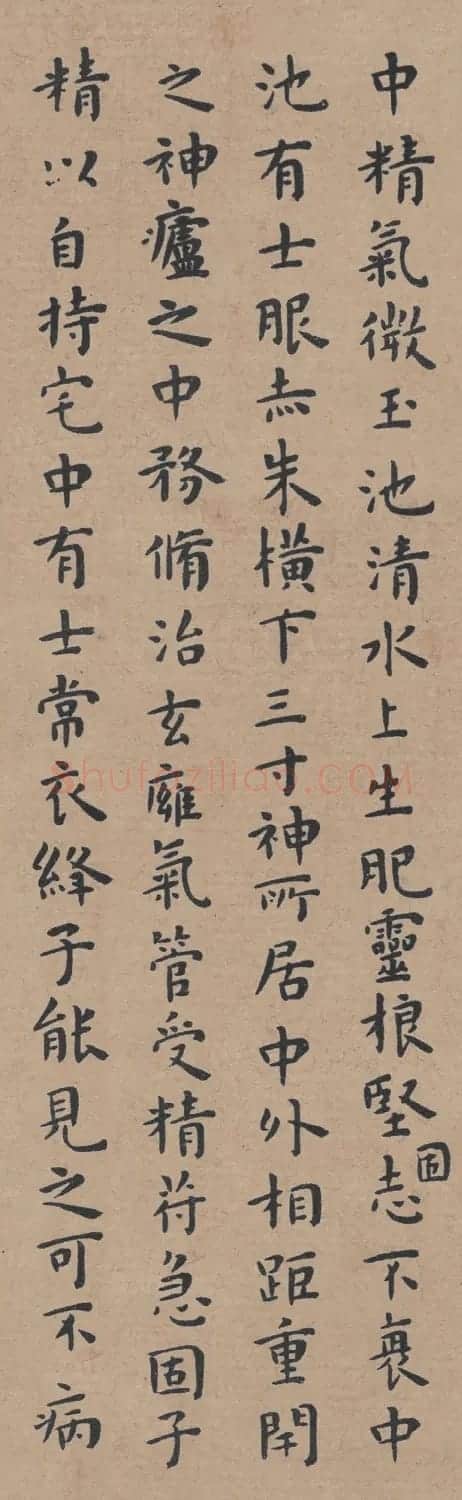 中精氣微玉池清水上生肥靈根堅固志不衰中
池有士服赤朱橫下三寸神所居中外相距重閉
之神廬之中務脩治玄𤸫氣管受精符急固子
精以自持宅中有士常衣絳子能見之可不病
shufaziliao.COM